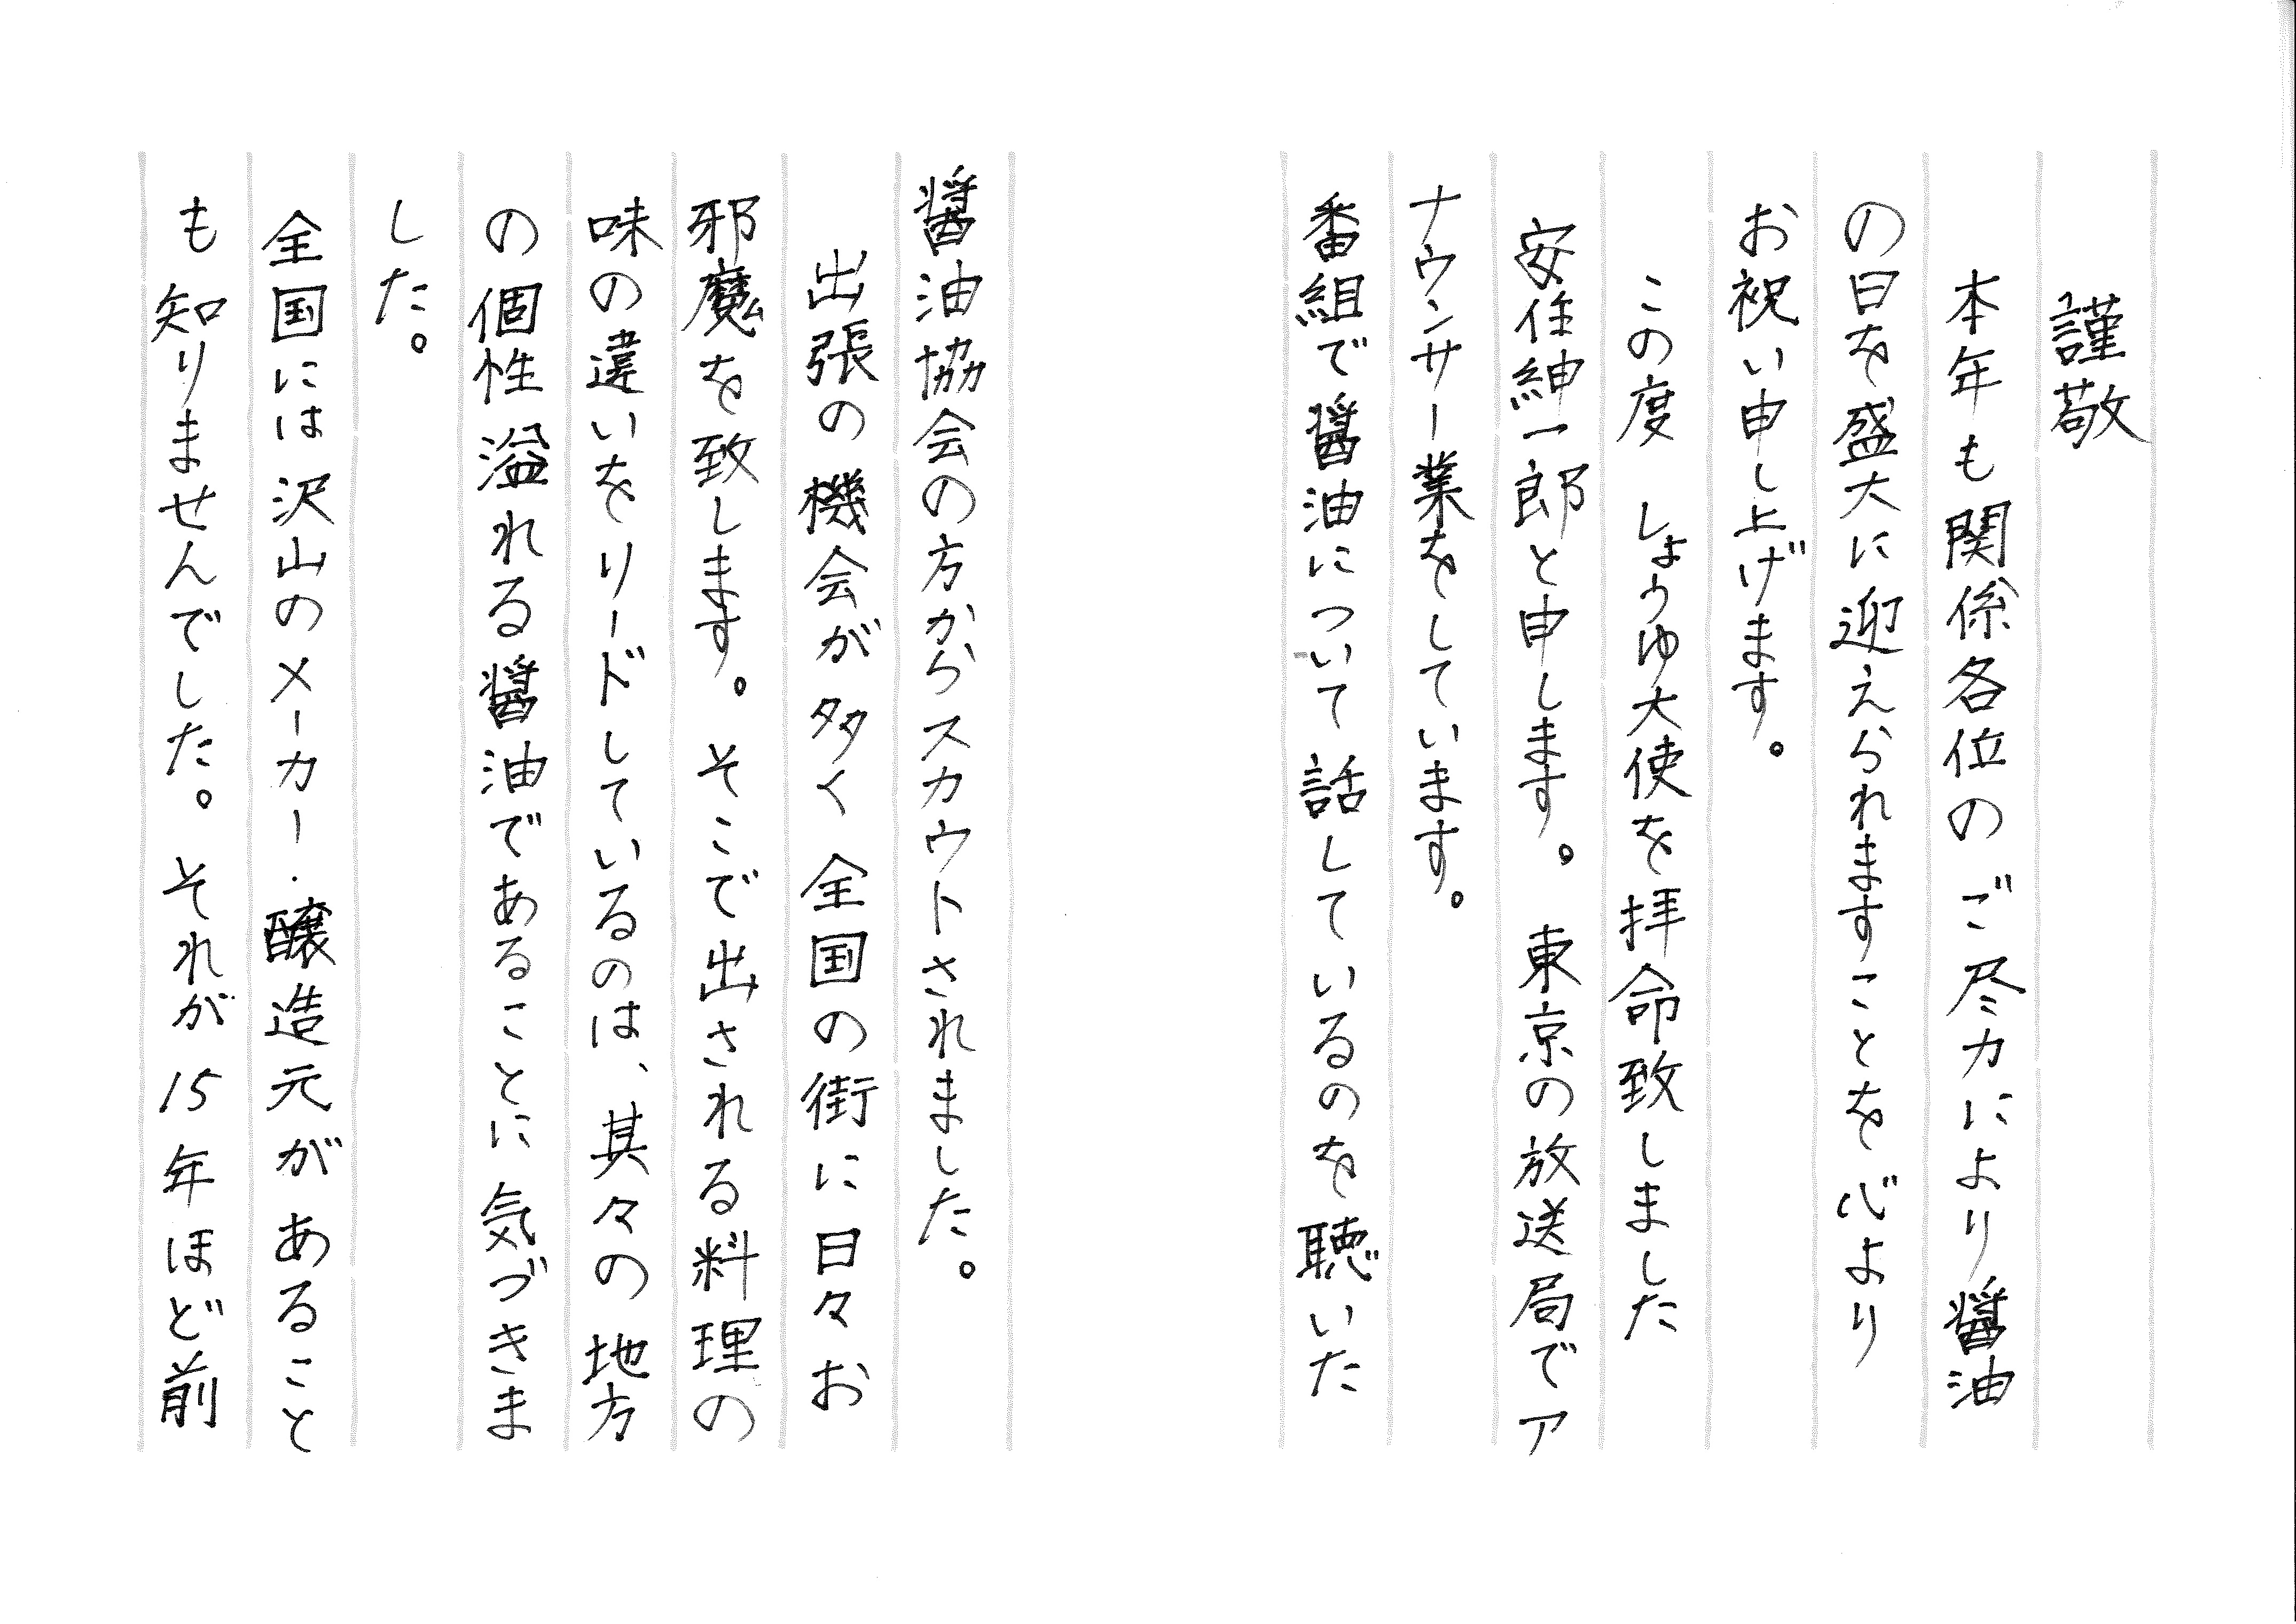 謹敬
本年も関係各位のご尽力により醤油
の日を盛大に迎えられますことを心より
お祝い申し上げます。
この度 しょうゆ大使を拝命致しました
安住紳一郎と申します。東京の放送局でア
ナウンサー業をしています。
番組で醤油について話しているのを聴いた
醤油協会の方からスカウトされました。
出張の機会が多く全国の街に日々お
邪魔を致します。そこで出される料理の
味の違いをリードしているのは、其々の地方
の個性溢れる醤油であることに気づきま
した。
全国には沢山のメーカー・醸造元があること
も知りませんでした。それが15年ほど前